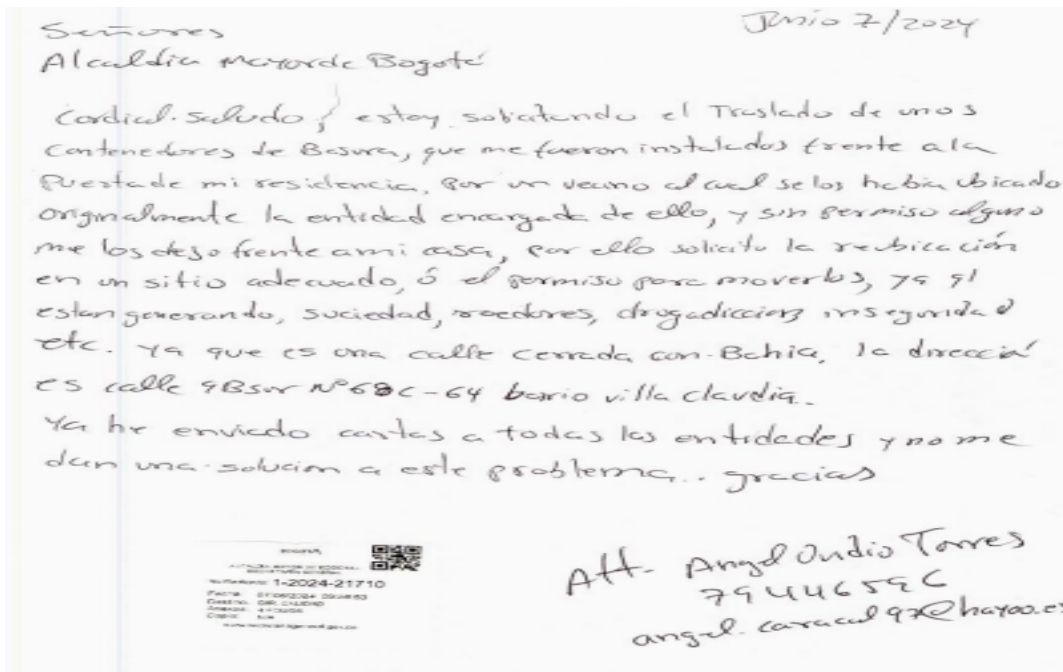 Junio 7/2024
Señores
Alcaldia Mayor de Bogotá
Cordial saludo, estoy solicitando el Traslado de unos
Contenedores de Basura, que me fueron instalados frente a la
Puerta de mi residencia, por un vecino al cual se los habia ubicado
originalmente la entidad encargada de ello, y sin permiso alguno
me los dejo frente a mi casa, por ello solicito la reubicación
en un sitio adecuado, ó el permiso para moverlos, ya q'
estan generando, suciedad, roedores, drogadiccion, inseguridad
etc. Ya que es una calle cerrada con Bahia, la direcció
es calle 9Bsur Nº 68C-64 barrio villa claudia.
Ya he enviado cartas a todas las entidades y no me
dan una solucion a este problema.. gracias
BOGOTÁ
1-2024-21710
Att- Angel Torres
79446596